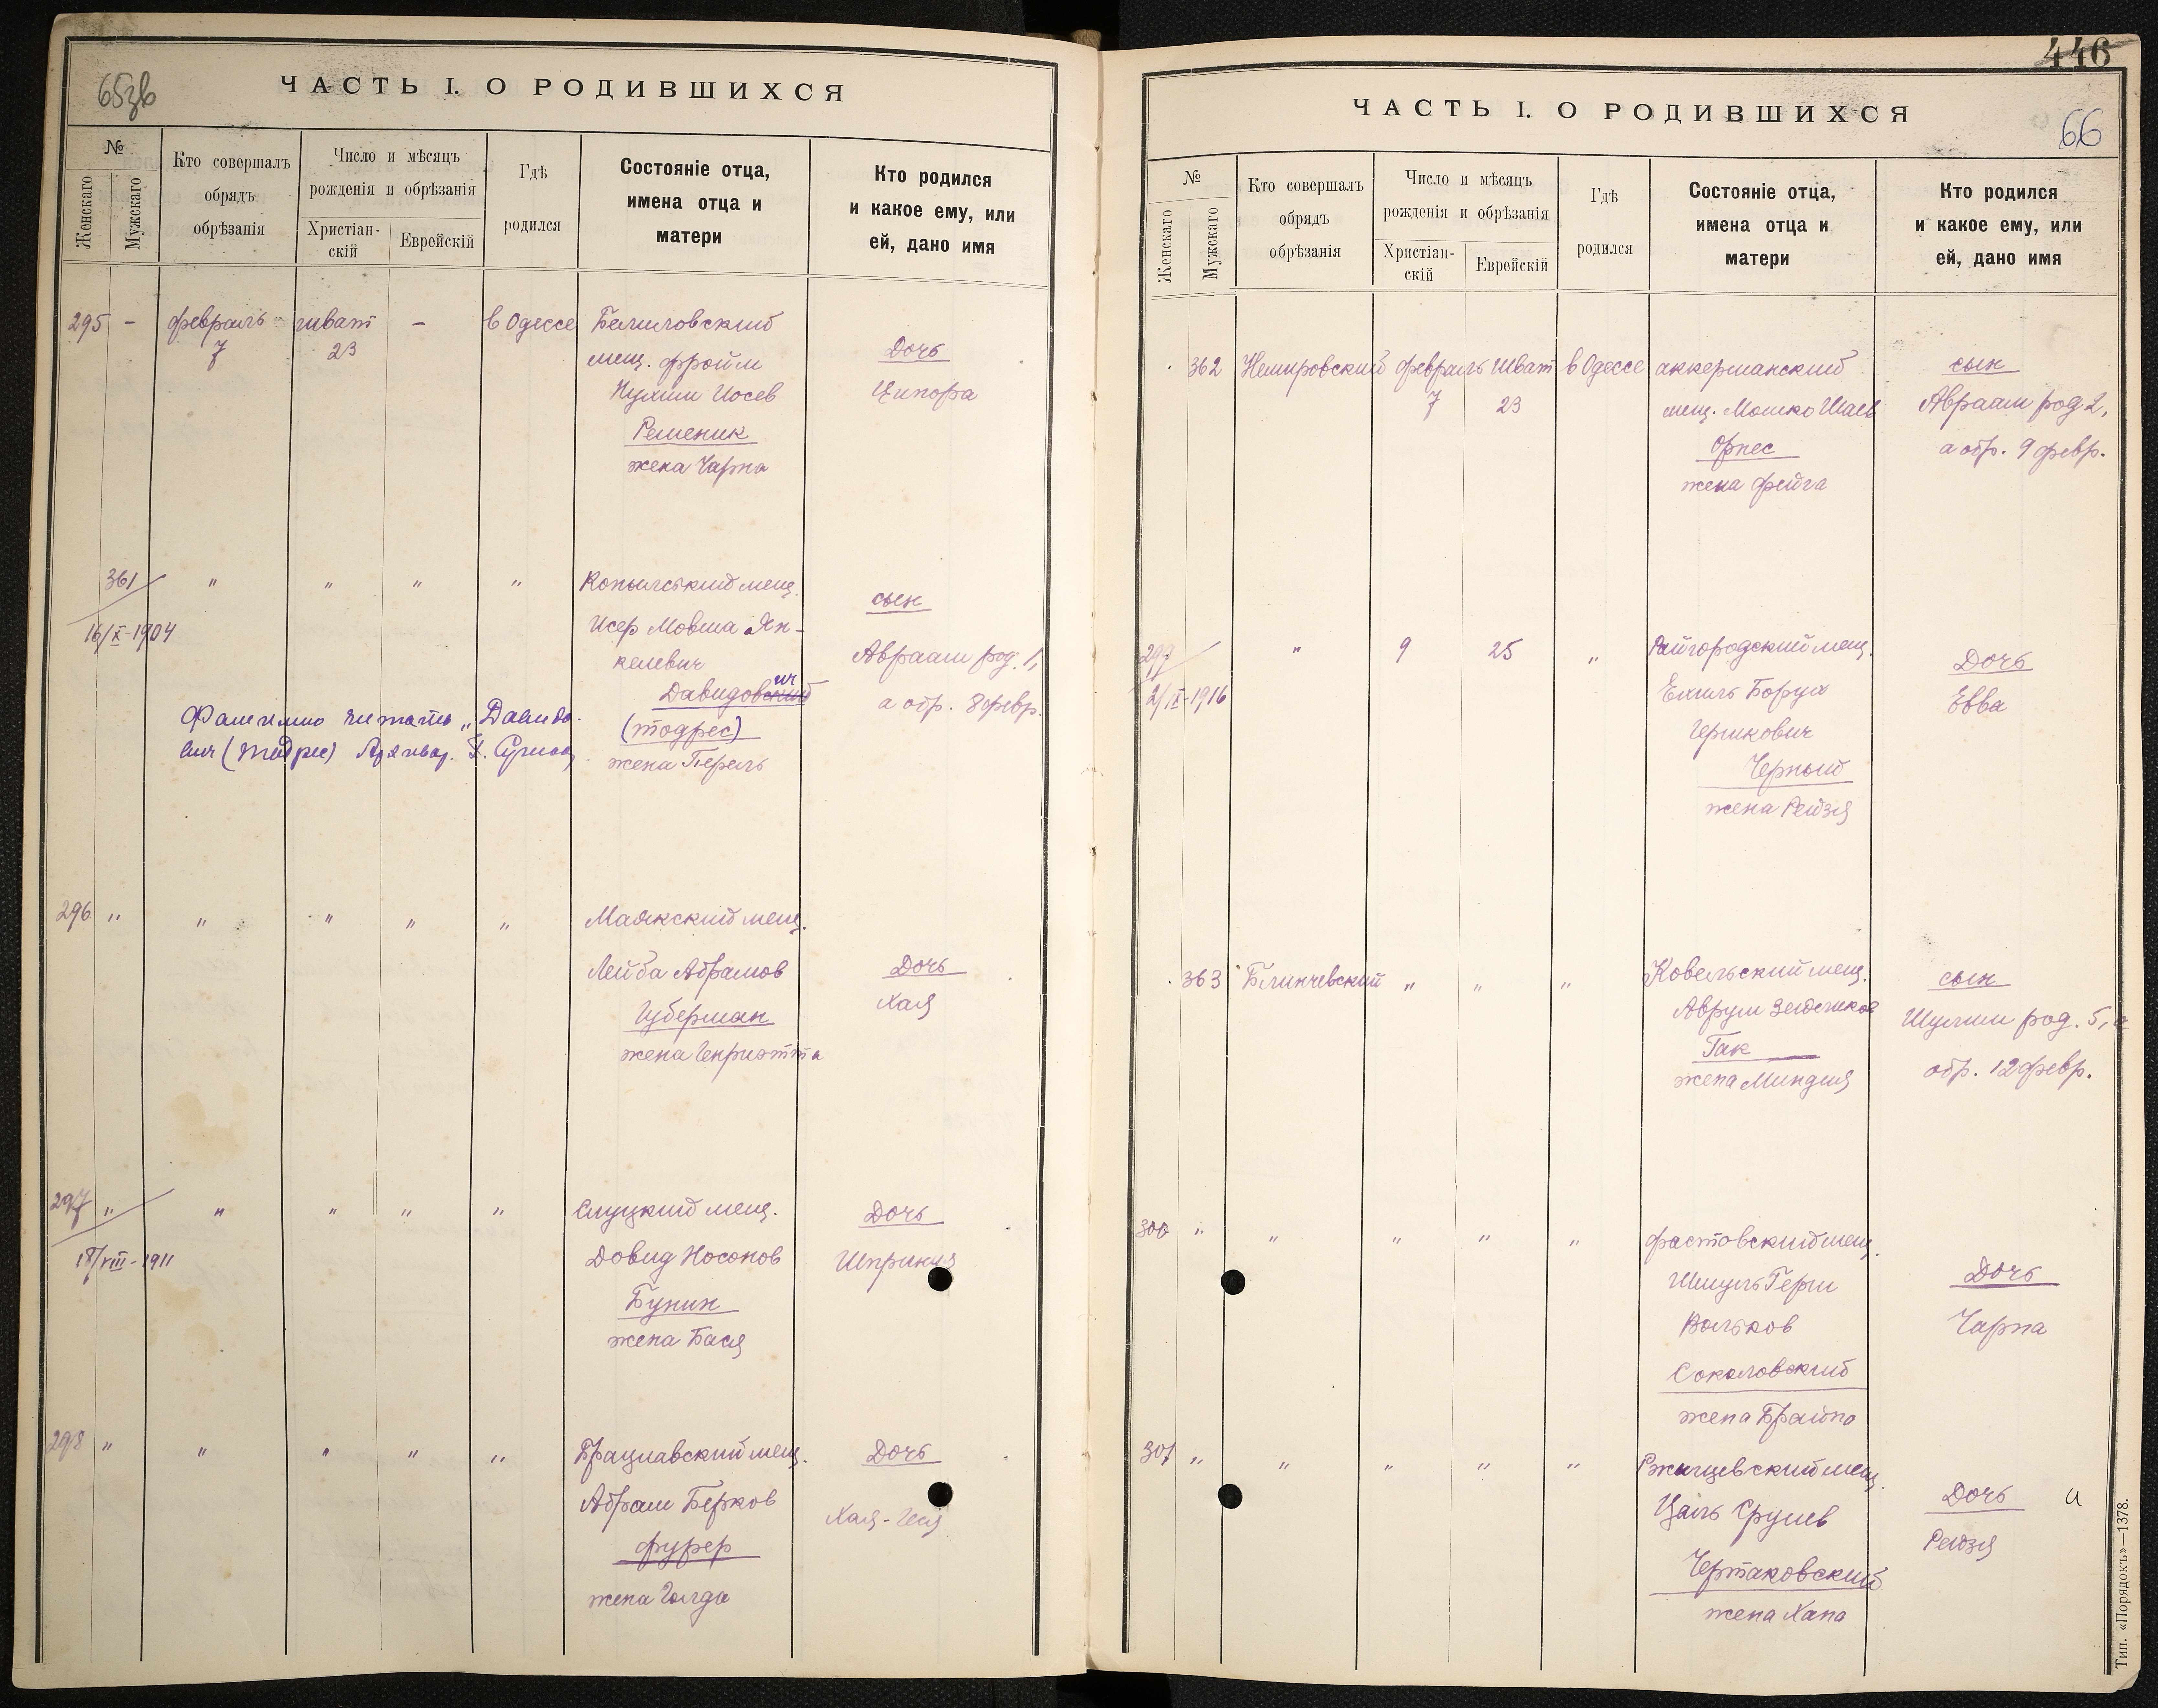 65зв
ЧАСТЬ I. О РОДИВШИХСЯ
№
Женскаго
Мужскаго
Кто совершалъ
обрядъ
обрѣзанія
Число и мѣсяцъ
рожденія и обрѣзанія
Христіан-
скій
Еврейскій
Гдѣ
родился
Состояніе отца,
имена отца и
матери
Кто родился
и какое ему, или
ей, дано имя
295 - февраль шват - в Одессе
7 23
мещ. Фройм
Нухим Иосев
Ременик
жена Чарна
Дочь
Ципора
361 " " " "
16/X-1904
Копыльский мещ.
Исер Мовша Ян-
келевич
Давидович
(тодрес)
жена Перель
сын
Авраам род. 1,
а обр. 8 февр.
Фамилию читать „Давидо-
вич (тодрес)
296 " " " " "
Маякский мещ.
Лейба Абрамов
Губерман
жена Генриэтта
Дочь
Хая
297 " " " " "
18/VIII-1911
Слуцкий мещ.
Довид Носонов
Бунин
жена Бася
Дочь
Шпринця
298 " " " " "
Брацлавский мещ.
Абрам Берков
Фурер
жена Голда
Дочь
446
66
ЧАСТЬ I. О РОДИВШИХСЯ
№
Женскаго
Мужскаго
Кто совершалъ
обрядъ
обрѣзанія
Число и мѣсяцъ
рожденія и обрѣзанія
Христіан-
скій
Еврейскій
Гдѣ
родился
Состояніе отца,
имена отца и
матери
Кто родился
и какое ему, или
ей, дано имя
362 Немировский февраль шват в Одессе
7 23
аккерманский
мещ. Мошко Шаев
Орпес
жена Фейга
сын
Авраам род 2,
а обр. 9 февр.
299 " 9 25 "
2/IX-1916
Райгородский мещ.
Ехиль Борух
Гершкович
Черный
жена Рейзя
Дочь
Евва
363 Блинчевский " " "
Ковельский мещ.
Аврум Зейдеков
Гак
жена Миндля
сын
Шулим род. 5, а
обр. 12 февр.
300 " " " " "
фастовский мещ.
Шмуль Герш
Вольков
Соколовский
жена Брайна
Дочь
Чарна
301 " " " " "
Ржищевский мещ.
Цаль Срулев
Чертаковский
жена Хана
Дочь
Рейзя
Тип. «Порядокъ»—1378.